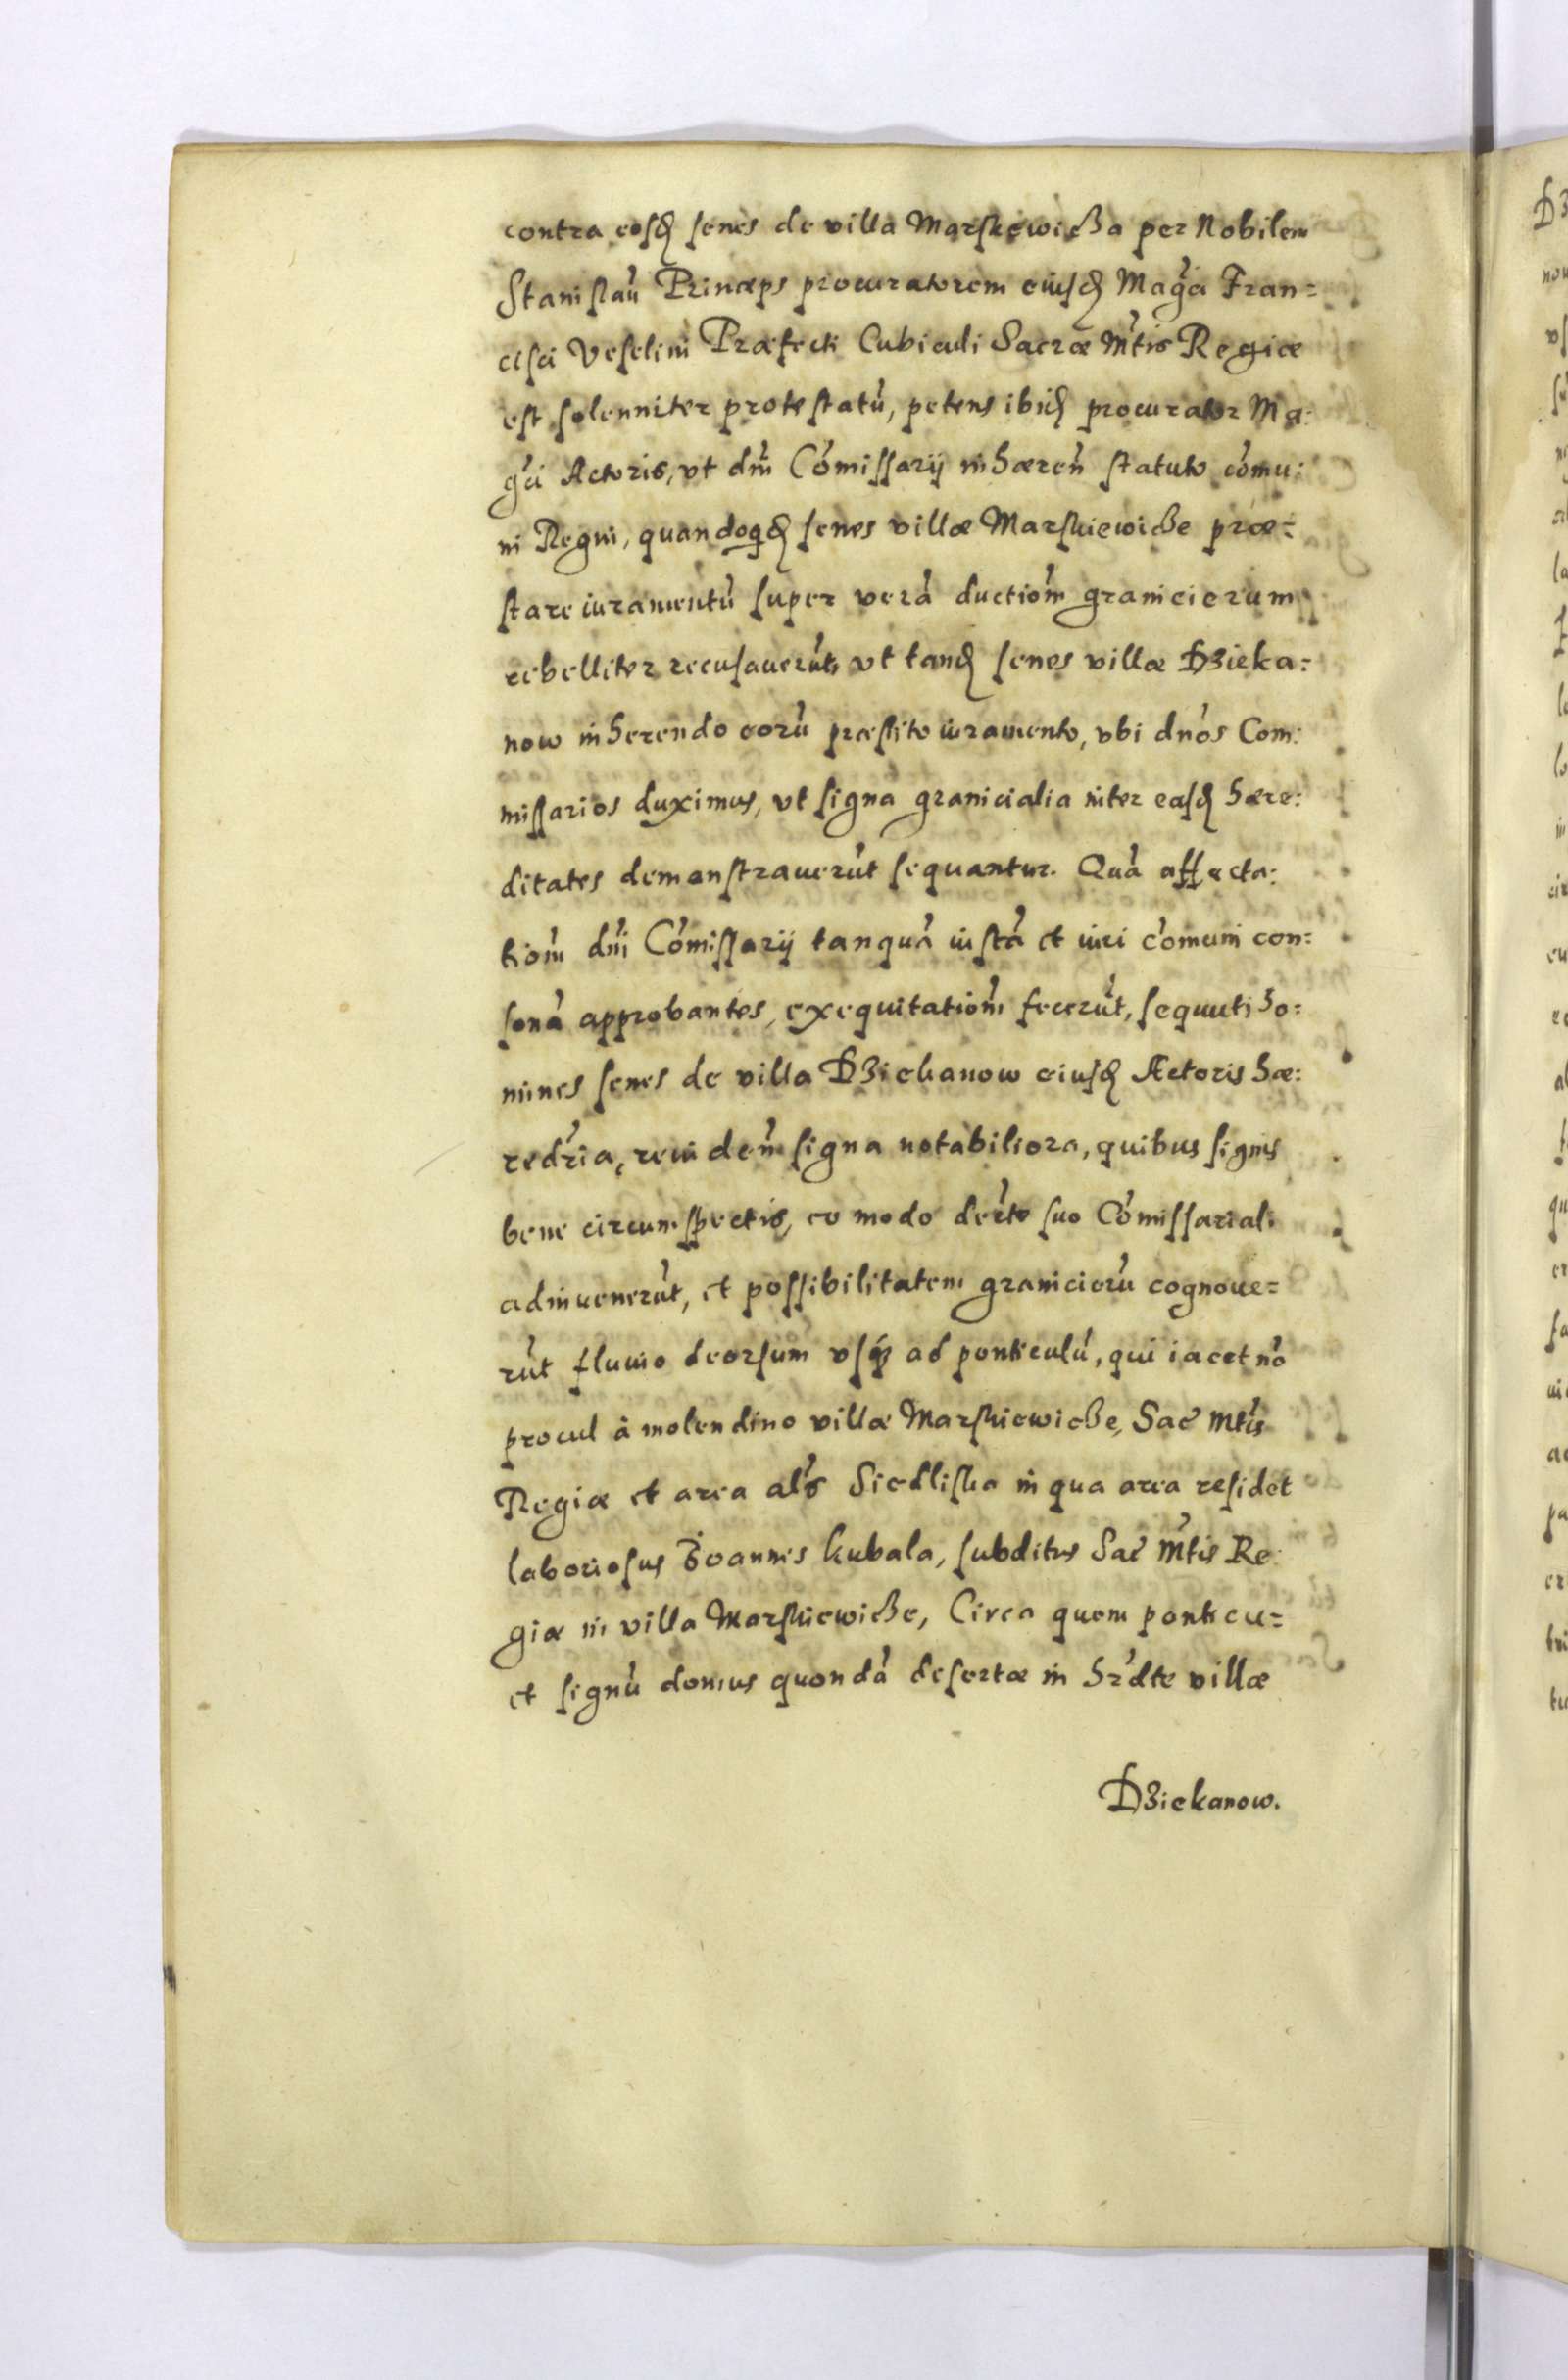 contra eosd senes de villa Marskewicza per Nobilem
Stanislaũ Princeps procuratorem eiusd Magci Fran=
cisci Veselini Præfecti Cubiculi Sacræ Mtis Regiæ
est solenniter protestatũ, petens ibid procurator Ma:
gci Actoris, vt dni Cõmissarij inhæren statuto cõmu:
ni Regni, quandoqd senes villæ Marskiewicze præ=
stare iuramentũ super verã ductiom graniciarum
rebelliter recusauerũt, vt tand senes villæ Dzieka=
now inherendo eorũ præstito iuramento, vbi dnos Com:
missarios duximus, vt signa granicialia inter easd hære:
ditates demonstrauerũt sequantur. Quã affecta:
tiom dni Cõmissarij tanquã iustã et iuri cõmuni con=
sonã approbantes, exequitatiom fecerũt, sequuti ho=
mines senes de villa Dziekanow eiusd Actoris hæ:
redria, reuiden signa notabiliora, quibus signis
bene circumspectis, eo modo derto suo Cõmissariali
adinuenerũt, et possibilitatem granicierũ cognoue=
rũt fluuio deorsum vsq ad ponticulũ, qui iacet nõ
procul à molendino villæ Marskiewicze, Sac Mtis
Regiæ et area als Siedliska in qua area residet
laboriosus Joannes Kubala, subditus Sac Mtis Re:
giæ in villa Marskiewicze, Circa quem ponticu=
et signũ domus quondã desertæ in hrdte villæ
Dziekanow.